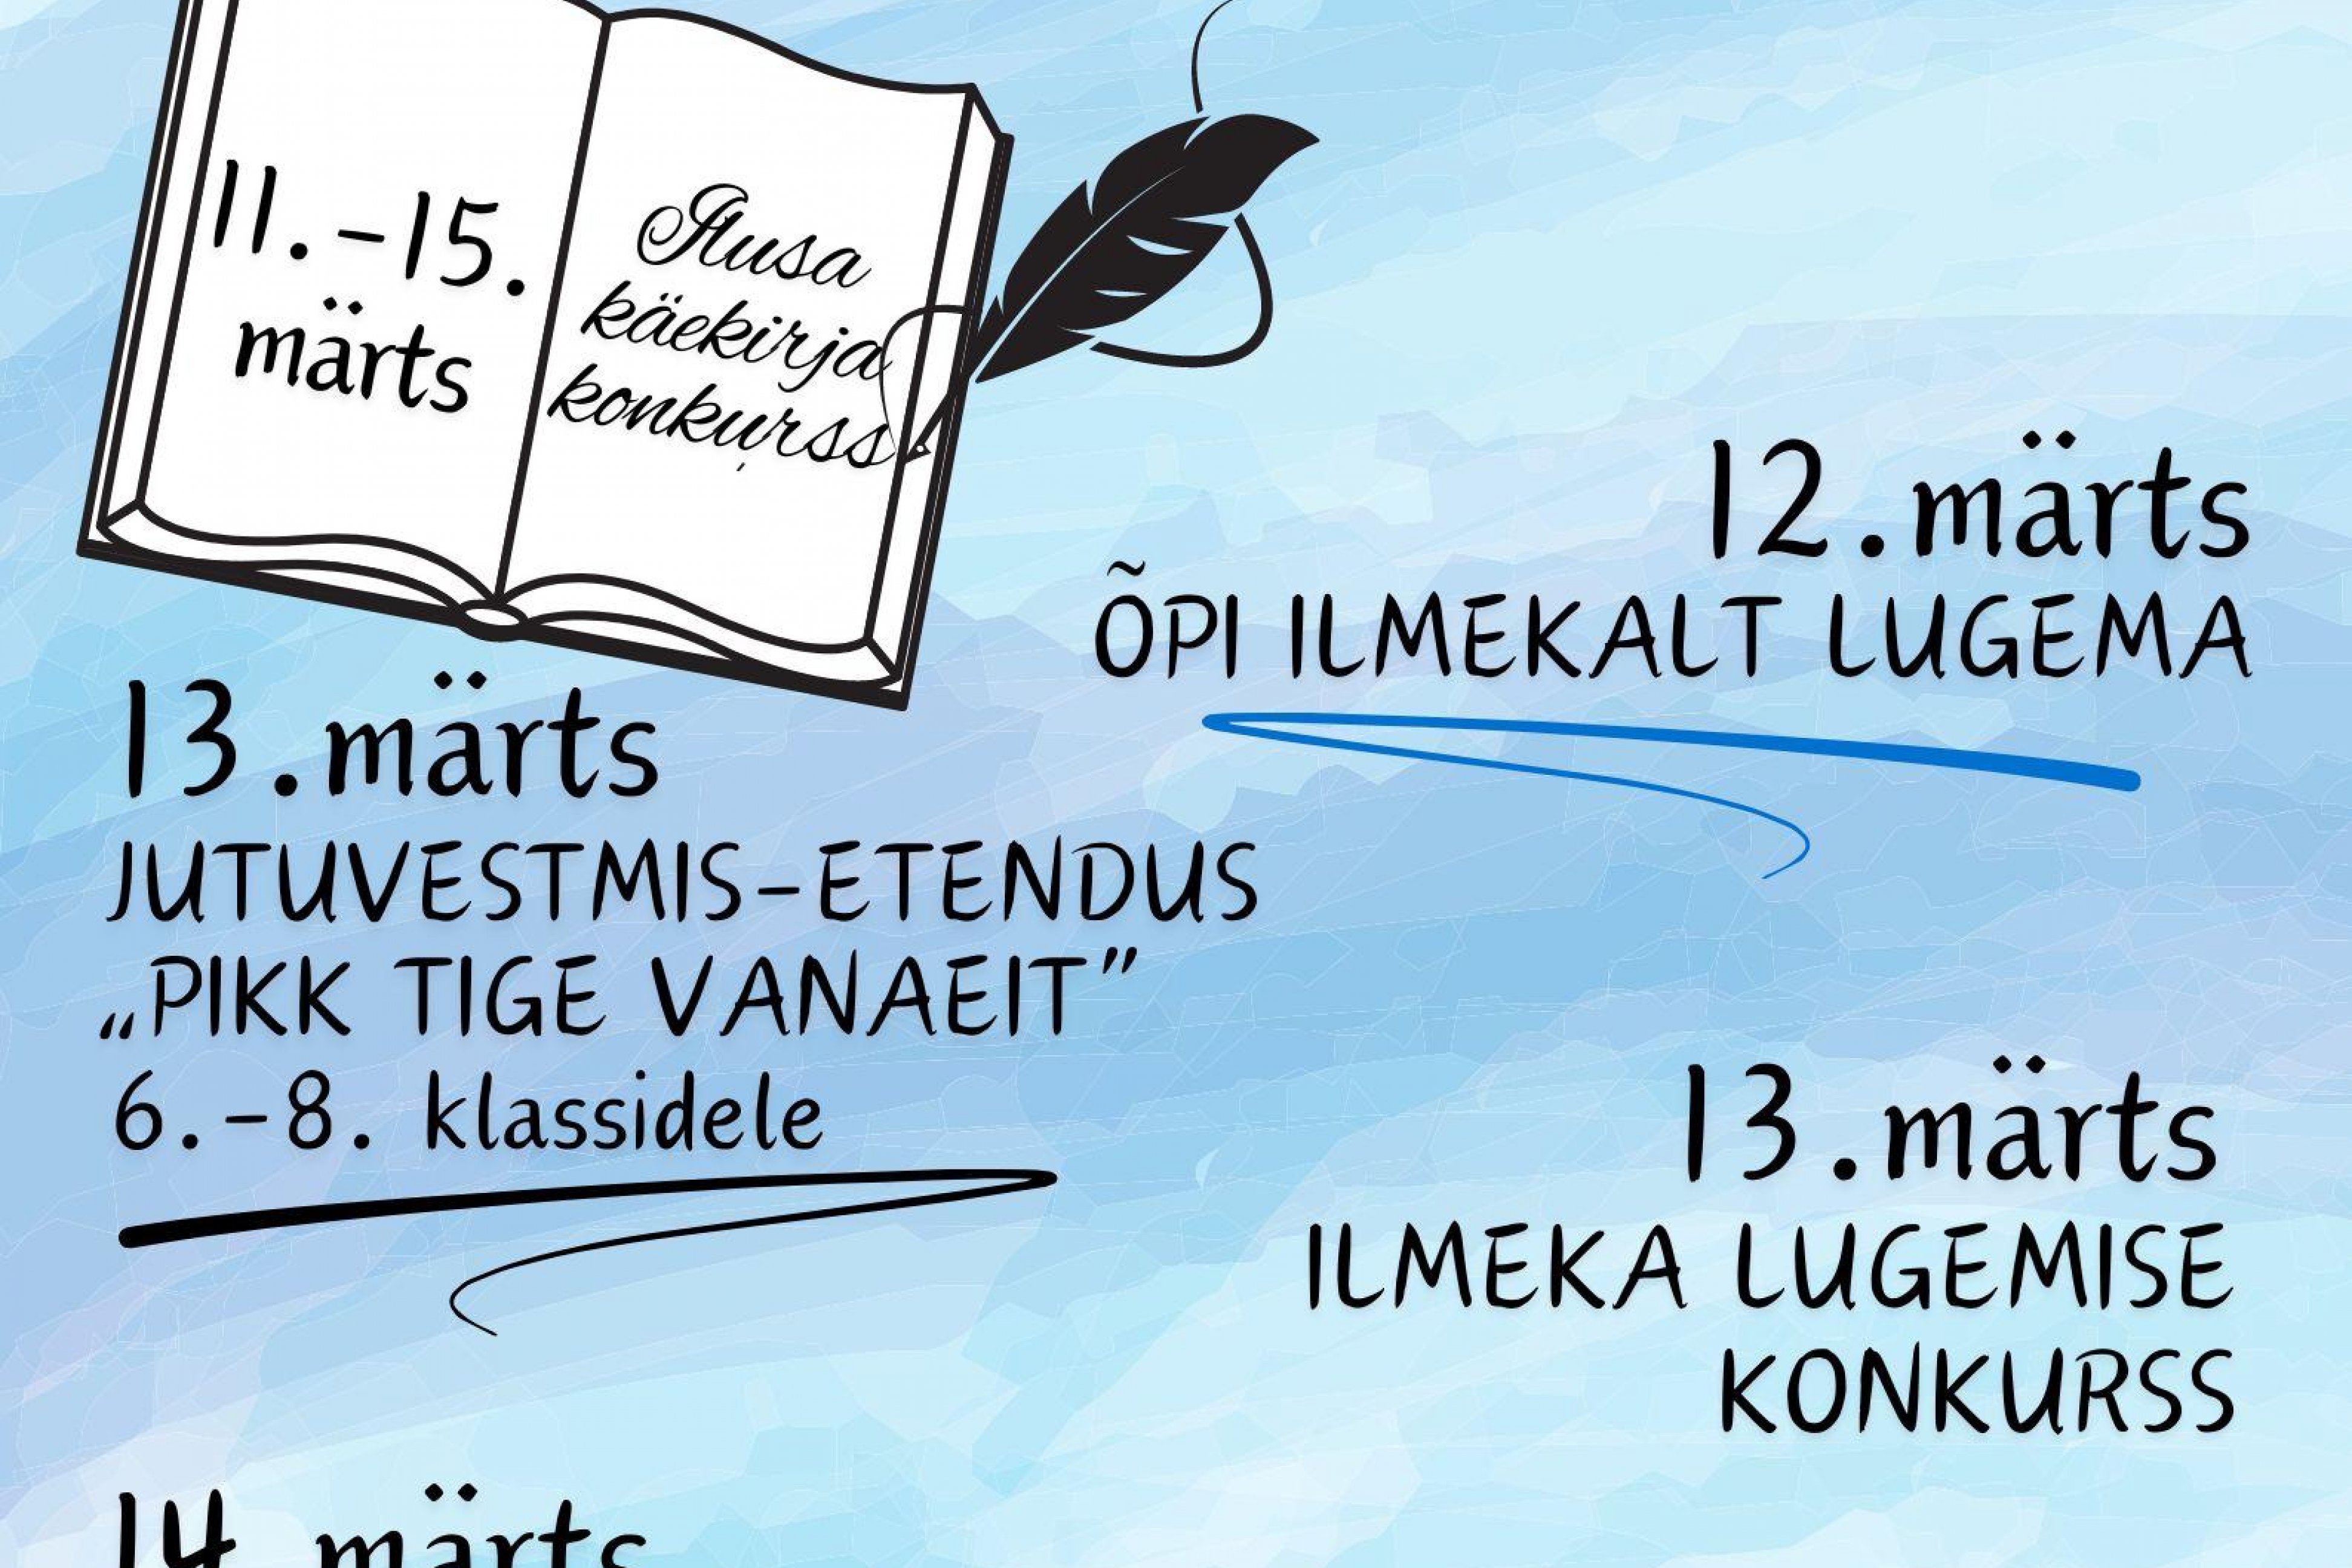 11.-15.
märts
Ilusa
käekirja
konkurss
12.märts
ÕPI ILMEKALT LUGEMA
13.märts
JUTUVESTMIS-ETENDUS
„PIKK TIGE VANAEIT”
6.-8. klassidele
13.märts
ILMEKA LUGEMISE
KONKURSS
14.märts